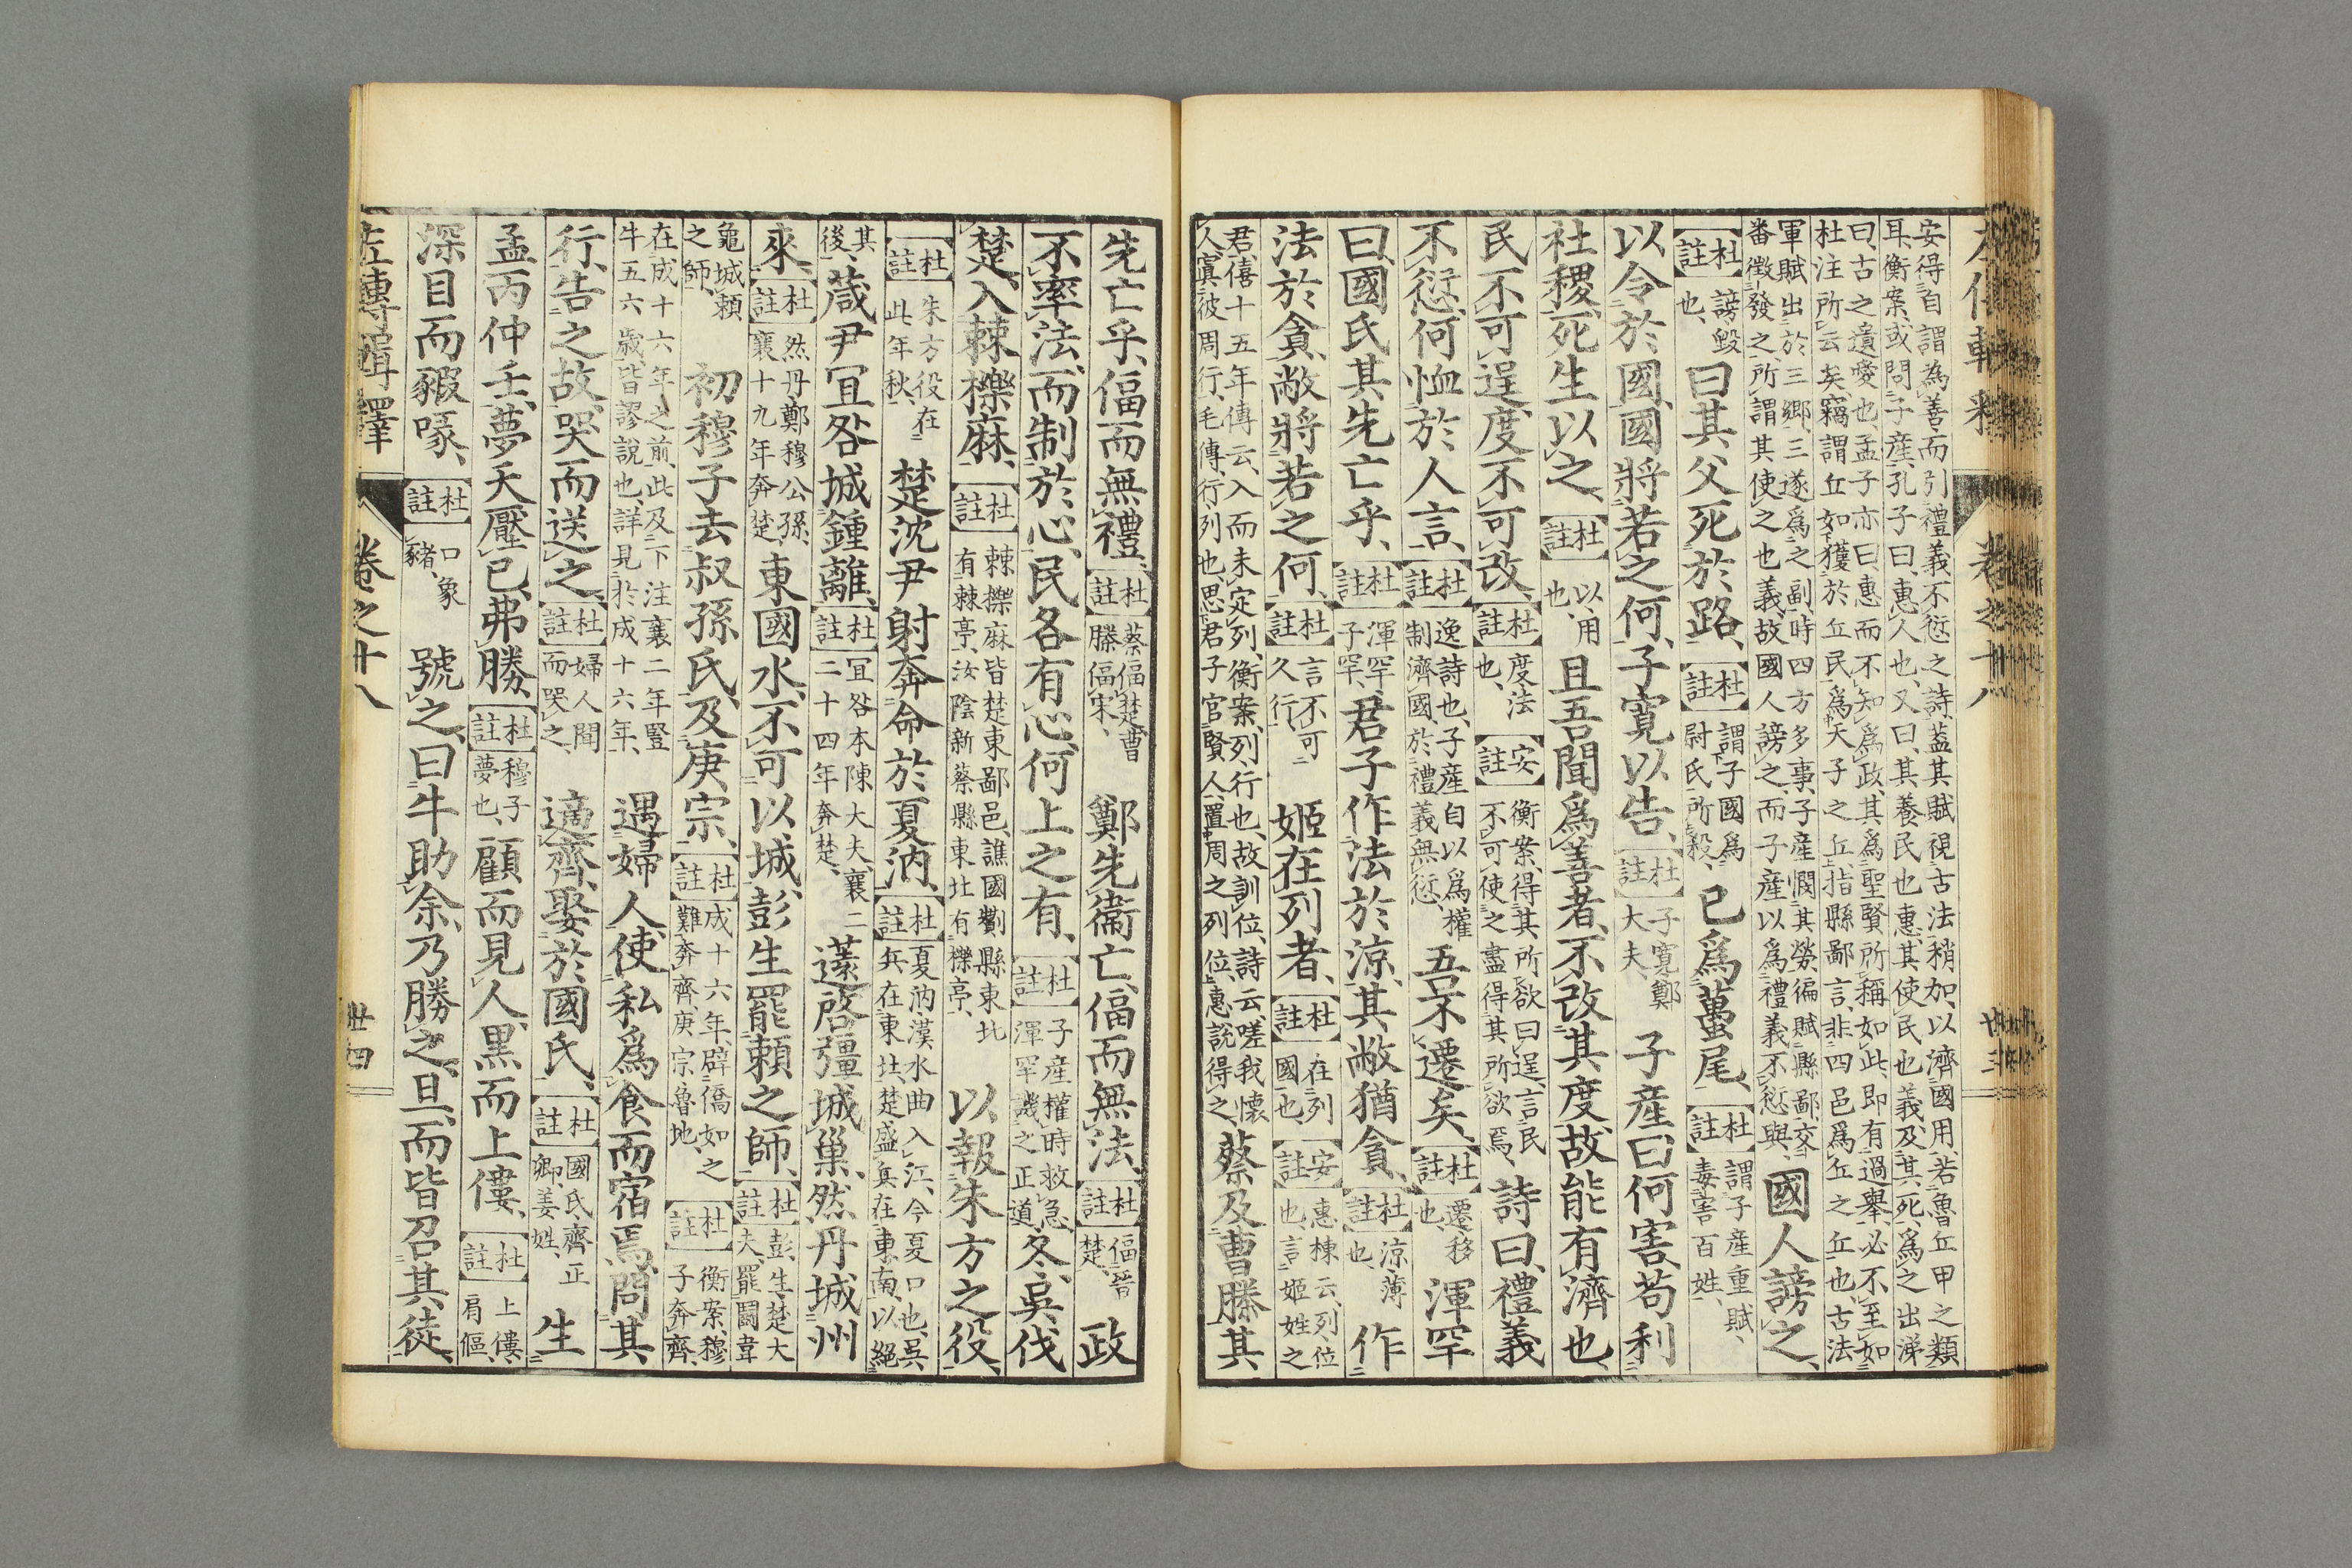 左傳輯釋 卷之十八 廿三
安得自謂為善、而引禮義不愆之詩、蓋其賦視古法稍加、以濟國用、若魯丘甲之類
耳、衡案、或問子產、孔子曰、惠人也、又曰、其養民也惠、其使民也義、及其死、爲之出涕
曰、古之遺愛也、孟子亦曰、惠而不知爲政、其爲聖賢所稱如此、即有過舉、必不至如
杜注所云矣、竊謂丘如獲於丘民爲天子之丘、指縣鄙言、非四邑爲丘之丘也、古法
軍賦出於三鄉、三遂爲之副、時四方多事、子產憫其勞、徧賦縣鄙、交
番徵發之、所謂其使之也義、故國人謗之、而子產以爲禮義不愆與、國人謗之、
杜註 謗毀也、曰其父死於路、杜註 謂子國爲尉氏所殺、已爲蠆尾、杜註 謂子產重賦、毒害百姓、
以令於國、國將若之何、子寬以告、杜註 子寬鄭大夫、子產曰何害、苟利
社稷、死生以之、杜註 以用也、且吾聞爲善者、不改其度、故能有濟也、
民不可逞、度不可改、杜註 度法也、安註 衡案、得其所欲曰逞、言民不可使之盡得其所欲焉、詩曰、禮義
不愆、何恤於人言、杜註 逸詩也、子產自以爲權制濟國、於禮義無愆、吾不遷矣、杜註 遷移也、渾罕
曰、國氏其先亡乎、杜註 渾罕、子罕、君子作法於涼、其敝猶貪、杜註 涼薄也、作
法於貪、敝將若之何、杜註 言不可久行、姬在列者、杜註 在列國也、安註 惠棟云、列、位也、言姬姓之
君、僖十五年傳云、入而未定列、衡案、列、行也、故訓位、詩云、嗟我懷
人、寘彼周行、毛傳、行、列也、思君子官賢人、置周之列位、惠說得之、蔡及曹滕其
先亡乎、偪而無禮、杜註 蔡偪楚、曹滕偪宋、鄭先衞亡、偪而無法、杜註 偪晉楚、政
不率法、而制於心、民各有心、何上之有、杜註 子產權時救急、渾罕譏之正道、冬、吳伐
楚、入棘櫟麻、杜註 棘櫟麻皆楚東鄙邑、譙國酇縣東北有棘亭、汝陰新蔡縣東北有櫟亭、以報朱方之役、
杜註 朱方役在此年秋、楚沈尹射奔命於夏汭、杜註 夏汭、漢水曲入江、今夏口也、吳兵在東北、楚盛兵在東南、以絕
其後、葴尹宜咎城鍾離、杜註 宜咎本陳大夫、襄二十四年奔楚、薳啓彊城巢、然丹城州
來、杜註 然丹、鄭穆公孫、襄十九年奔楚、東國水、不可以城、彭生罷賴之師、杜註 彭生、楚大夫、罷鬭韋
龜城賴之師、初穆子去叔孫氏、及庚宗、杜註 成十六年、辟僑如之難、奔齊、庚宗魯地、杜註 衡案、穆子奔齊、
在成十六年之前、此及下注、襄二年豎牛五六歲、皆謬說也、詳見於成十六年、遇婦人、使私爲食而宿焉、問其
行、告之故、哭而送之、杜註 婦人聞而哭之、適齊、娶於國氏、杜註 國氏齊正卿、姜姓、生
孟丙仲壬、夢天壓己、弗勝、杜註 穆子夢也、顧而見人、黑而上僂、杜註 上僂、肩傴、
深目而豭喙、杜註 口象豬、號之曰、牛助余、乃勝之、旦、而皆召其徒、
左傳輯釋 卷之十八 廿四